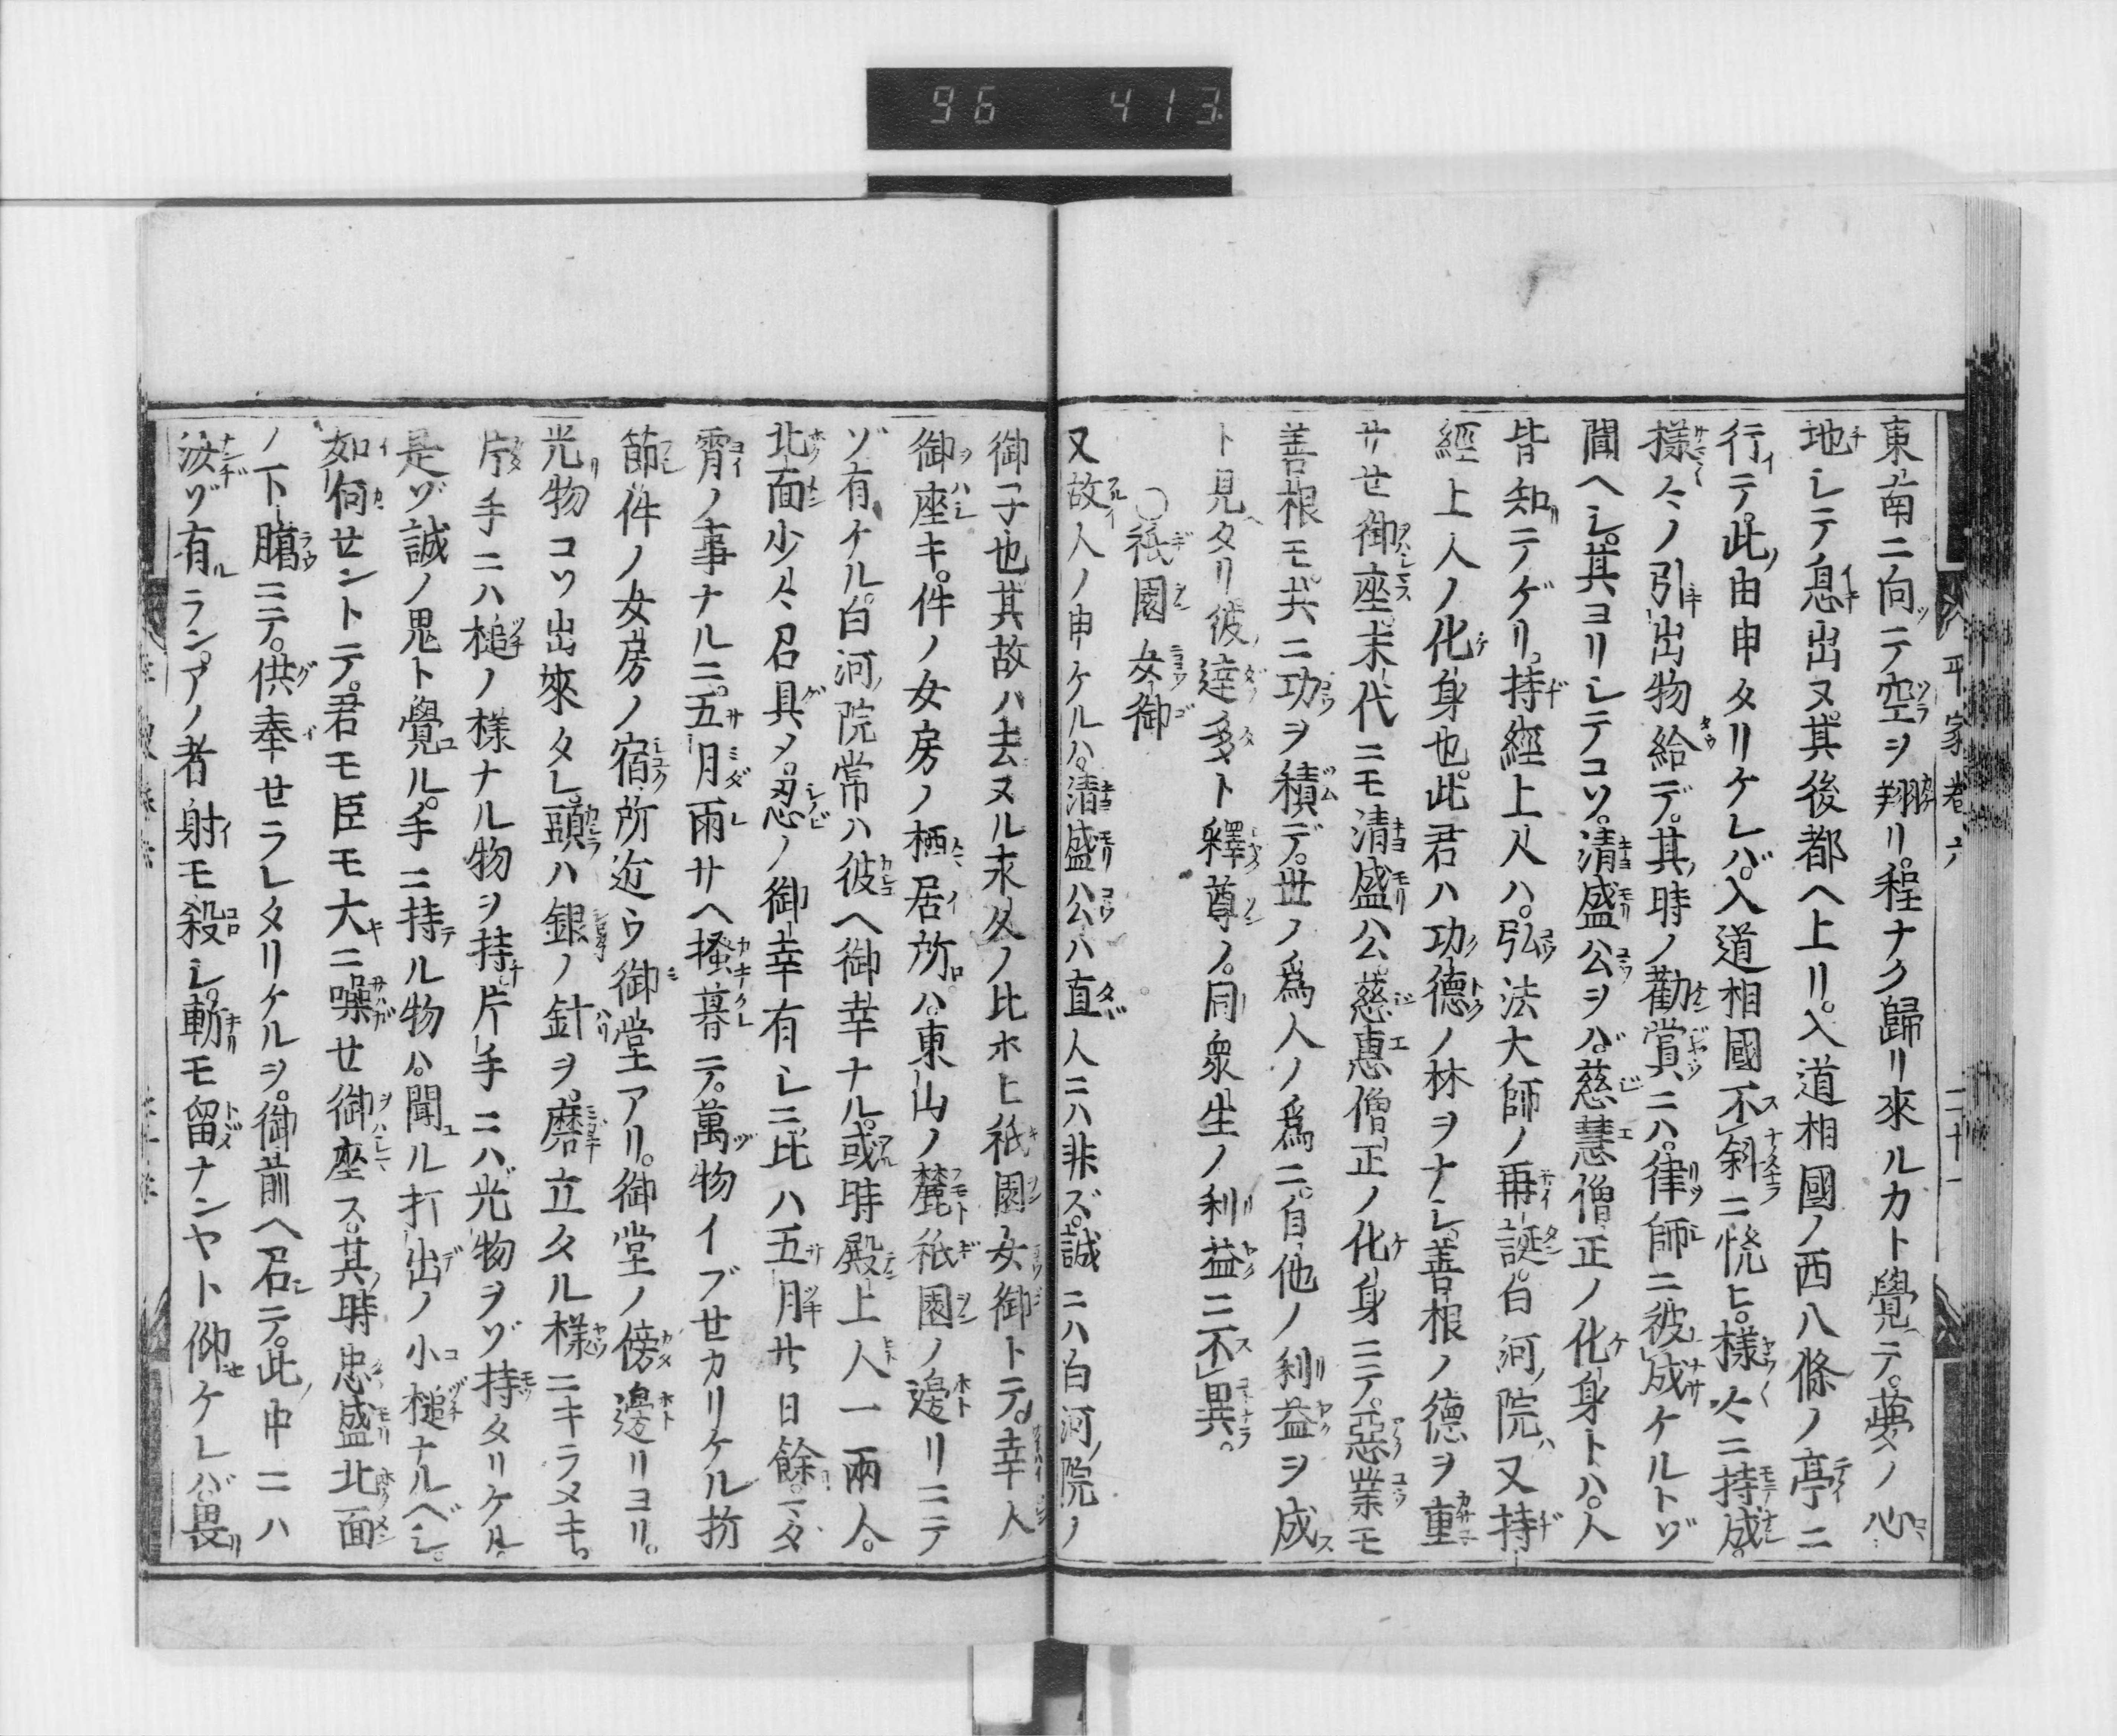 96 413
平家卷六 二十一
東南ニ向テ空ヲ翔リ。程ナク歸リ來ルカト覺テ。夢ノ心
地シテ息出ヌ。其後都ヘ上リ。入道相國ノ西八條ノ亭ニ
行テ。此由申タリケレバ。入道相國不斜ニ悦ヒ。樣〻ニ持成。
樣〻ノ引出物給デ。其時ノ勸賞ニハ。律師ニ彼成ケルトゾ
聞ヘシ。其ヨリシテコソ。清盛公ヲバ。慈慧僧正ノ化身トハ。人
皆知ニテゲリ。持經上人ハ。弘法大師ノ再誕。白河院ハ又持
經上人ノ化身也。此君ハ功德ノ林ヲナシ。善根ノ德ヲ重
サセ御座。末代ニモ清盛公。慈惠僧正ノ化身ニテ。惡業モ
善根モ。共ニ功ヲ積デ。世ノ爲人ノ爲ニ。自他ノ利益ヲ成ス
ト見タリ。彼達多ト釋尊ノ。同衆生ノ利益ニ不異。
〇祇園女御
又故人ノ申ケルハ。清盛公ハ直人ニハ非ズ。誠ニハ白河院ノ
御子也。其故ハ去ヌル永久ノ比ホヒ祇園女御トテ。幸人
御座キ。件ノ女房ノ栖居所ハ。東山ノ麓祇園ノ邊リニテ
ゾ有ケル。白河院常ハ彼ヘ御幸ナル。或時殿上人一兩人。
北面少〻召具メ。忍ノ御幸有シニ。比ハ五月廿日餘。マダ
宵ノ事ナルニ。五月雨サヘ掻暮テ。萬物イブセカリケル折
節。件ノ女房ノ宿所近ウ御堂アリ。御堂ノ傍邊リヨリ。
光物コソ出來タレ。頭ハ銀ノ針ヲ。磨立タル樣ニキラメキ。
片手ニハ槌ノ樣ナル物ヲ持。片手ニハ光物ヲゾ持タリケル。
是ゾ誠ノ鬼ト覺ル。手ニ持テル物ハ。聞ユル打出ノ小槌ナルベシ。
如何セントテ。君モ臣モ大ニ噪セ御座ス。其時忠盛北面
ノ下臈ニテ。供奉セラレタリケルヲ。御前ヘ召テ。此中ニハ
汝ゾ有ラン。アノ者射モ殺シ。斬モ留ナンヤト仰ケレバ。畏リ